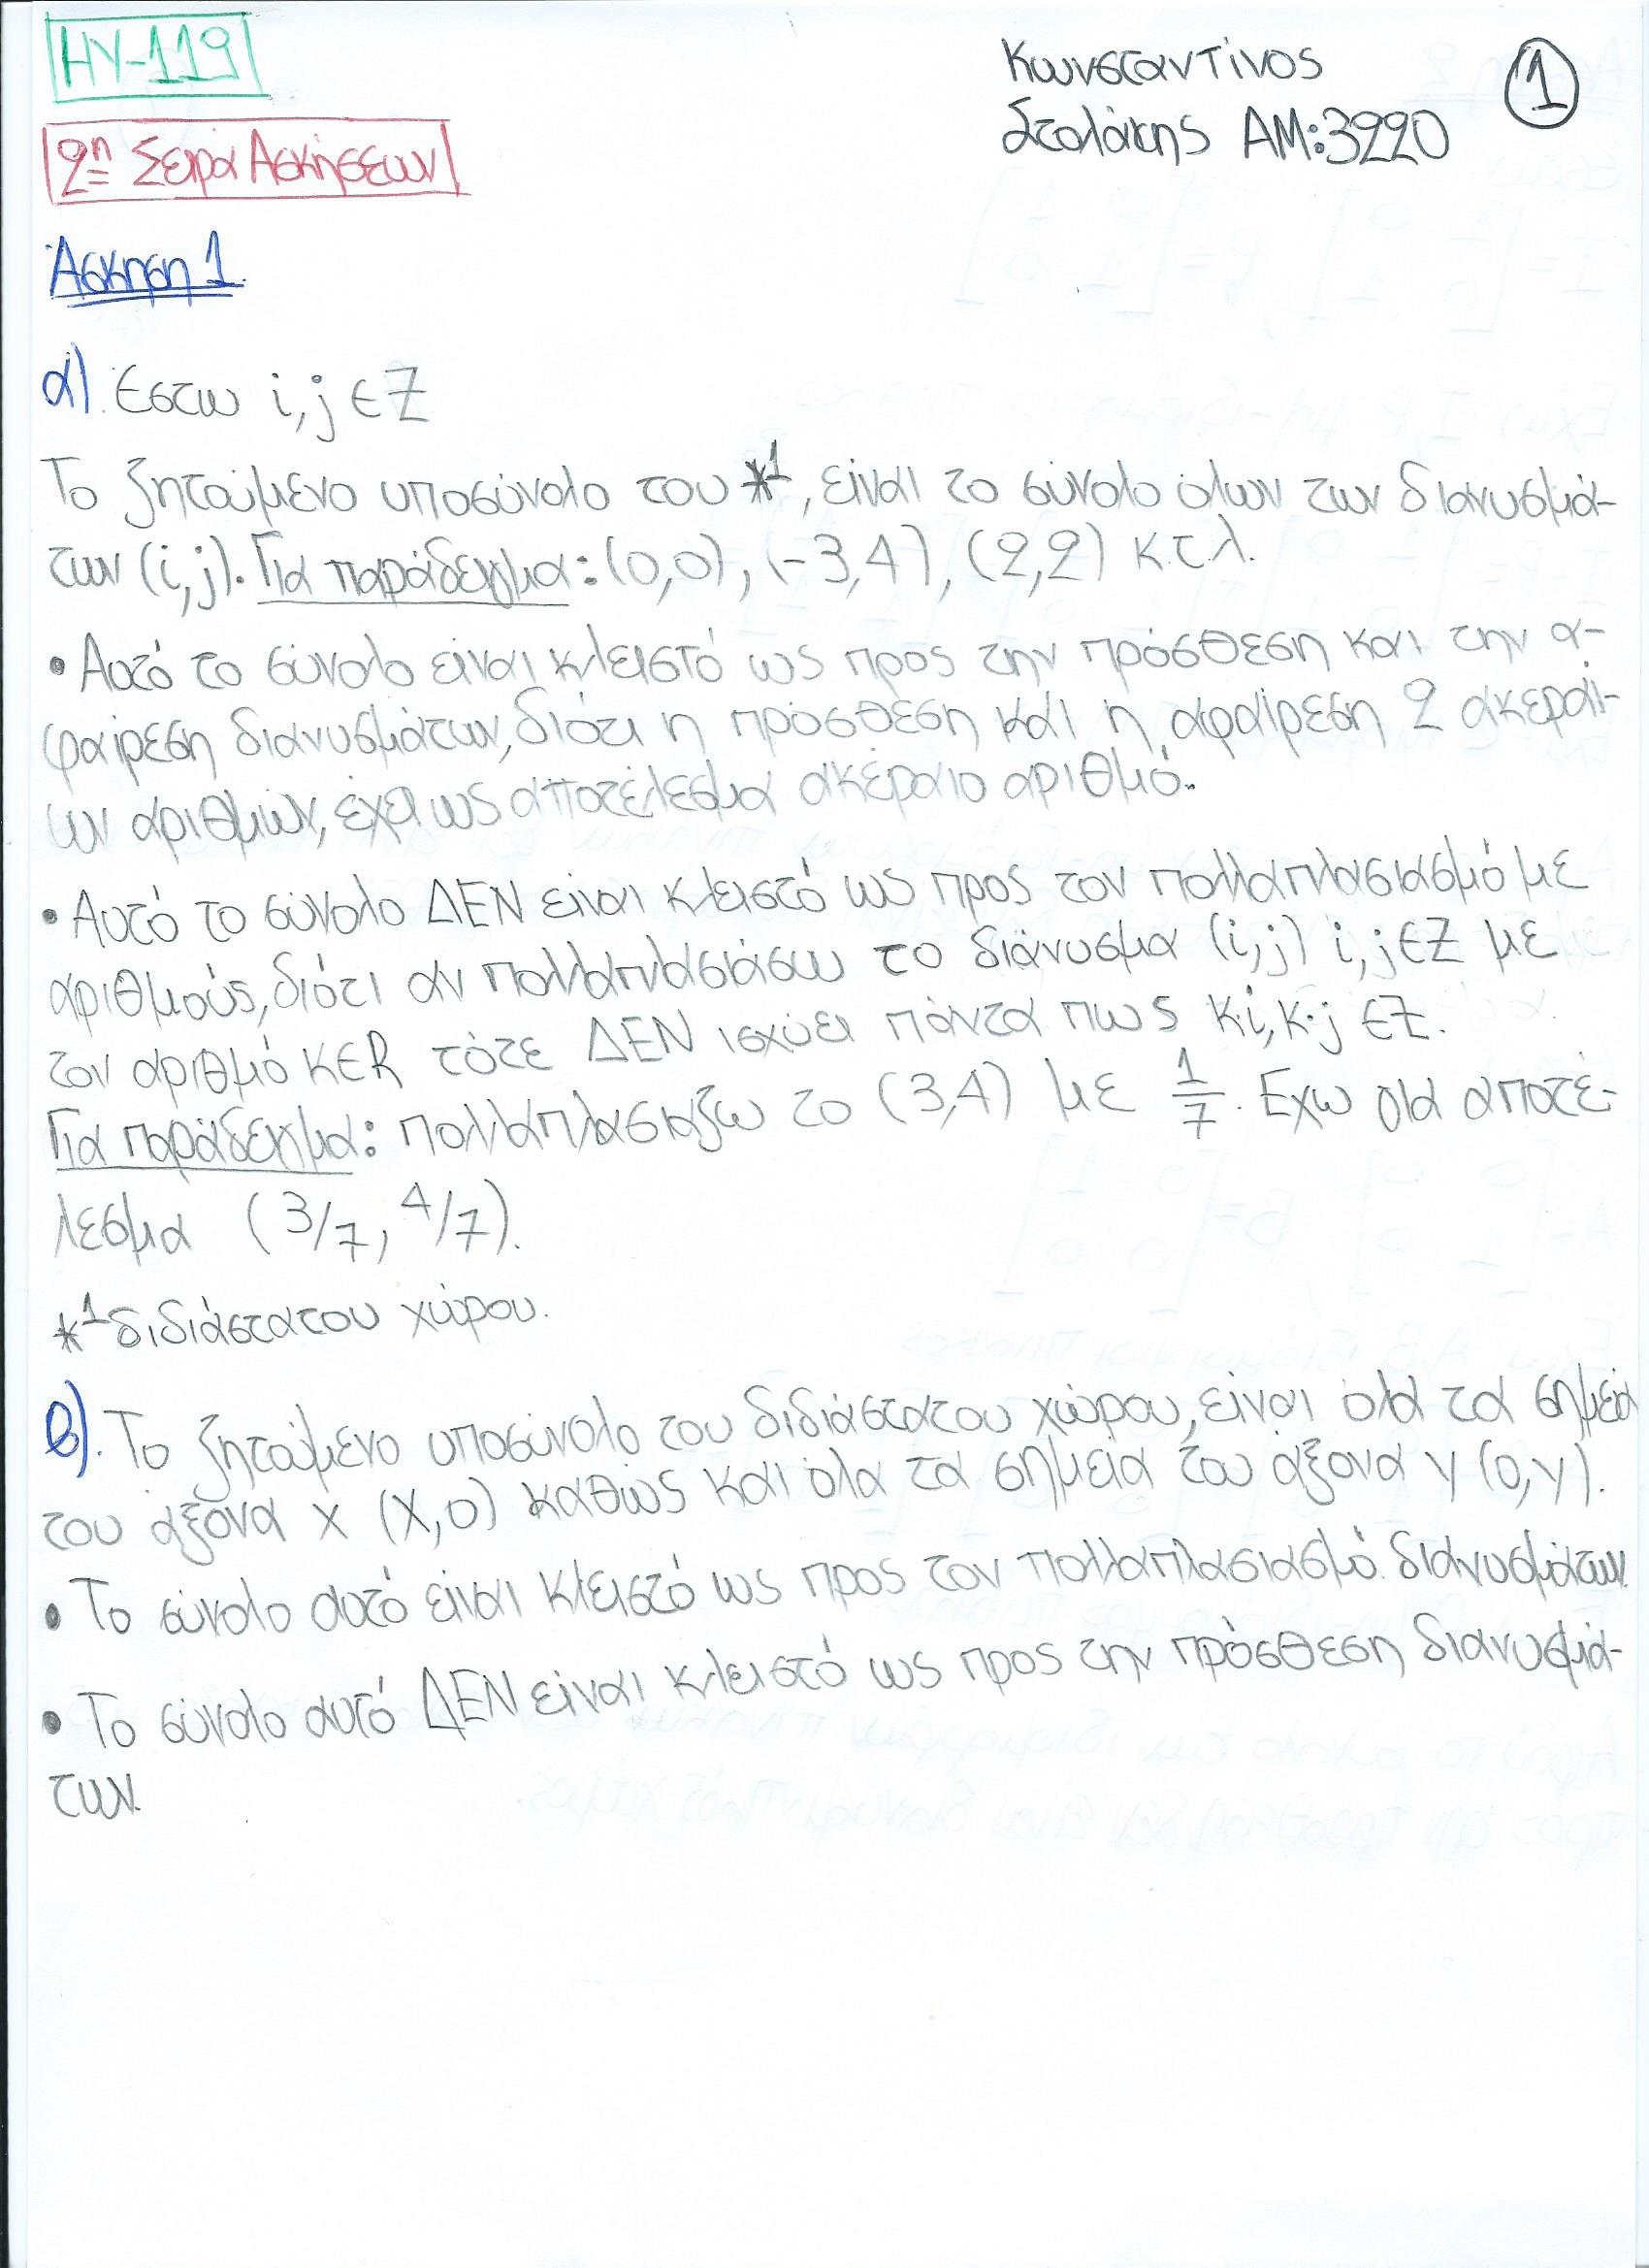 ΗΥ-119
Κωνσταντίνος
1
Στολάκης ΑΜ:3220
2η Σειρά Ασκήσεων
Άσκηση 1.
α). Έστω i, j ∈ Z
Το ζητούμενο υποσύνολο του *1, είναι το σύνολο όλων των διανυσμά-
των (i,j). Για παράδειγμα: (0,0), (-3,4), (2,2) κ.τ.λ.
• Αυτό το σύνολο είναι κλειστό ως προς την πρόσθεση και την α-
φαίρεση διανυσμάτων, διότι η πρόσθεση και η αφαίρεση 2 ακεραί-
ων αριθμών, έχει ως αποτέλεσμα ακέραιο αριθμό.
• Αυτό το σύνολο ΔΕΝ είναι κλειστό ως προς τον πολλαπλασιασμό με
αριθμούς, διότι αν πολλαπλασιάσω το διάνυσμα (i,j) i,j∈Z με
τον αριθμό κ∈R τότε ΔΕΝ ισχύει πάντα πως κ·i, κ·j ∈Z.
Για παράδειγμα: πολλαπλασιάζω το (3,4) με 1/7. Έχω σια αποτέ-
λεσμα (3/7, 4/7).
*1 διδιάστατου χώρου.
β). Το ζητούμενο υποσύνολο του διδιάστατου χώρου, είναι όλα τα σημεία
του άξονα x (x,0) καθώς και όλα τα σημεία του άξονα y (0,y).
• Το σύνολο αυτό είναι κλειστό ως προς τον πολλαπλασιασμό διανυσμάτων.
• Το σύνολο αυτό ΔΕΝ είναι κλειστό ως προς την πρόσθεση διανυσμά-
των.